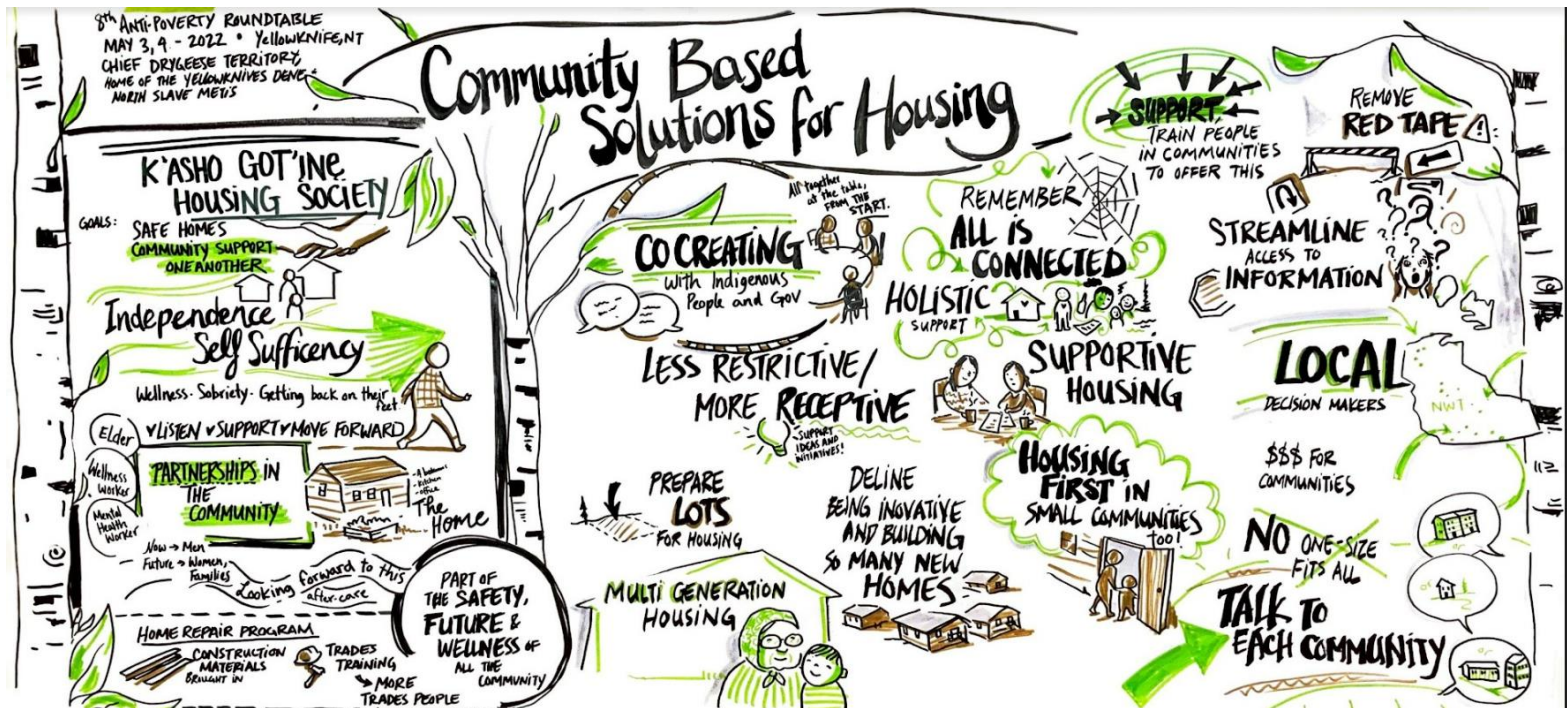 8th ANTI-POVERTY ROUNDTABLE
MAY 3, 4 - 2022 • YELLOWKNIFE, NT
CHIEF DRYGEESE TERRITORY,
HOME OF THE YELLOWKNIVES DENE -
NORTH SLAVE METIS
Community Based
Solutions for Housing
K'ASHO GOT'INE
HOUSING SOCIETY
GOALS:
SAFE HOMES
COMMUNITY SUPPORT
ONE ANOTHER
Independence
Self Sufficency
Wellness · Sobriety · Getting back on their
feet
Elder
Wellness
Worker
Mental
Health
Worker
✓LISTEN ✓SUPPORT ✓MOVE FORWARD
PARTNERSHIPS IN
THE
COMMUNITY
- kitchen
- office
The
Home
Now → Men
Future → Women,
Families
Looking forward to this
after-care
HOME REPAIR PROGRAM
CONSTRUCTION
MATERIALS
BROUGHT IN
TRADES
TRAINING
↳ MORE
TRADES PEOPLE
PART OF
THE SAFETY,
FUTURE &
WELLNESS OF
ALL THE
COMMUNITY
CO CREATING
With Indigenous
People and Gov
All together
at the table,
FROM THE
START.
REMEMBER
ALL IS
CONNECTED
HOLISTIC
SUPPORT
LESS RESTRICTIVE/
MORE RECEPTIVE
SUPPORT
IDEAS AND
INITIATIVES!
SUPPORTIVE
HOUSING
PREPARE
LOTS
FOR HOUSING
DELINE
BEING INOVATIVE
AND BUILDING
SO MANY NEW
HOMES
HOUSING
FIRST IN
SMALL COMMUNITIES
too!
MULTI GENERATION
HOUSING
SUPPORT,
TRAIN PEOPLE
IN COMMUNITIES
TO OFFER THIS
REMOVE
RED TAPE
STREAMLINE
ACCESS TO
INFORMATION
LOCAL
DECISION MAKERS
NWT
$$$ FOR
COMMUNITIES
NO ONE-SIZE
FITS ALL
TALK TO
EACH COMMUNITY
or
or
or